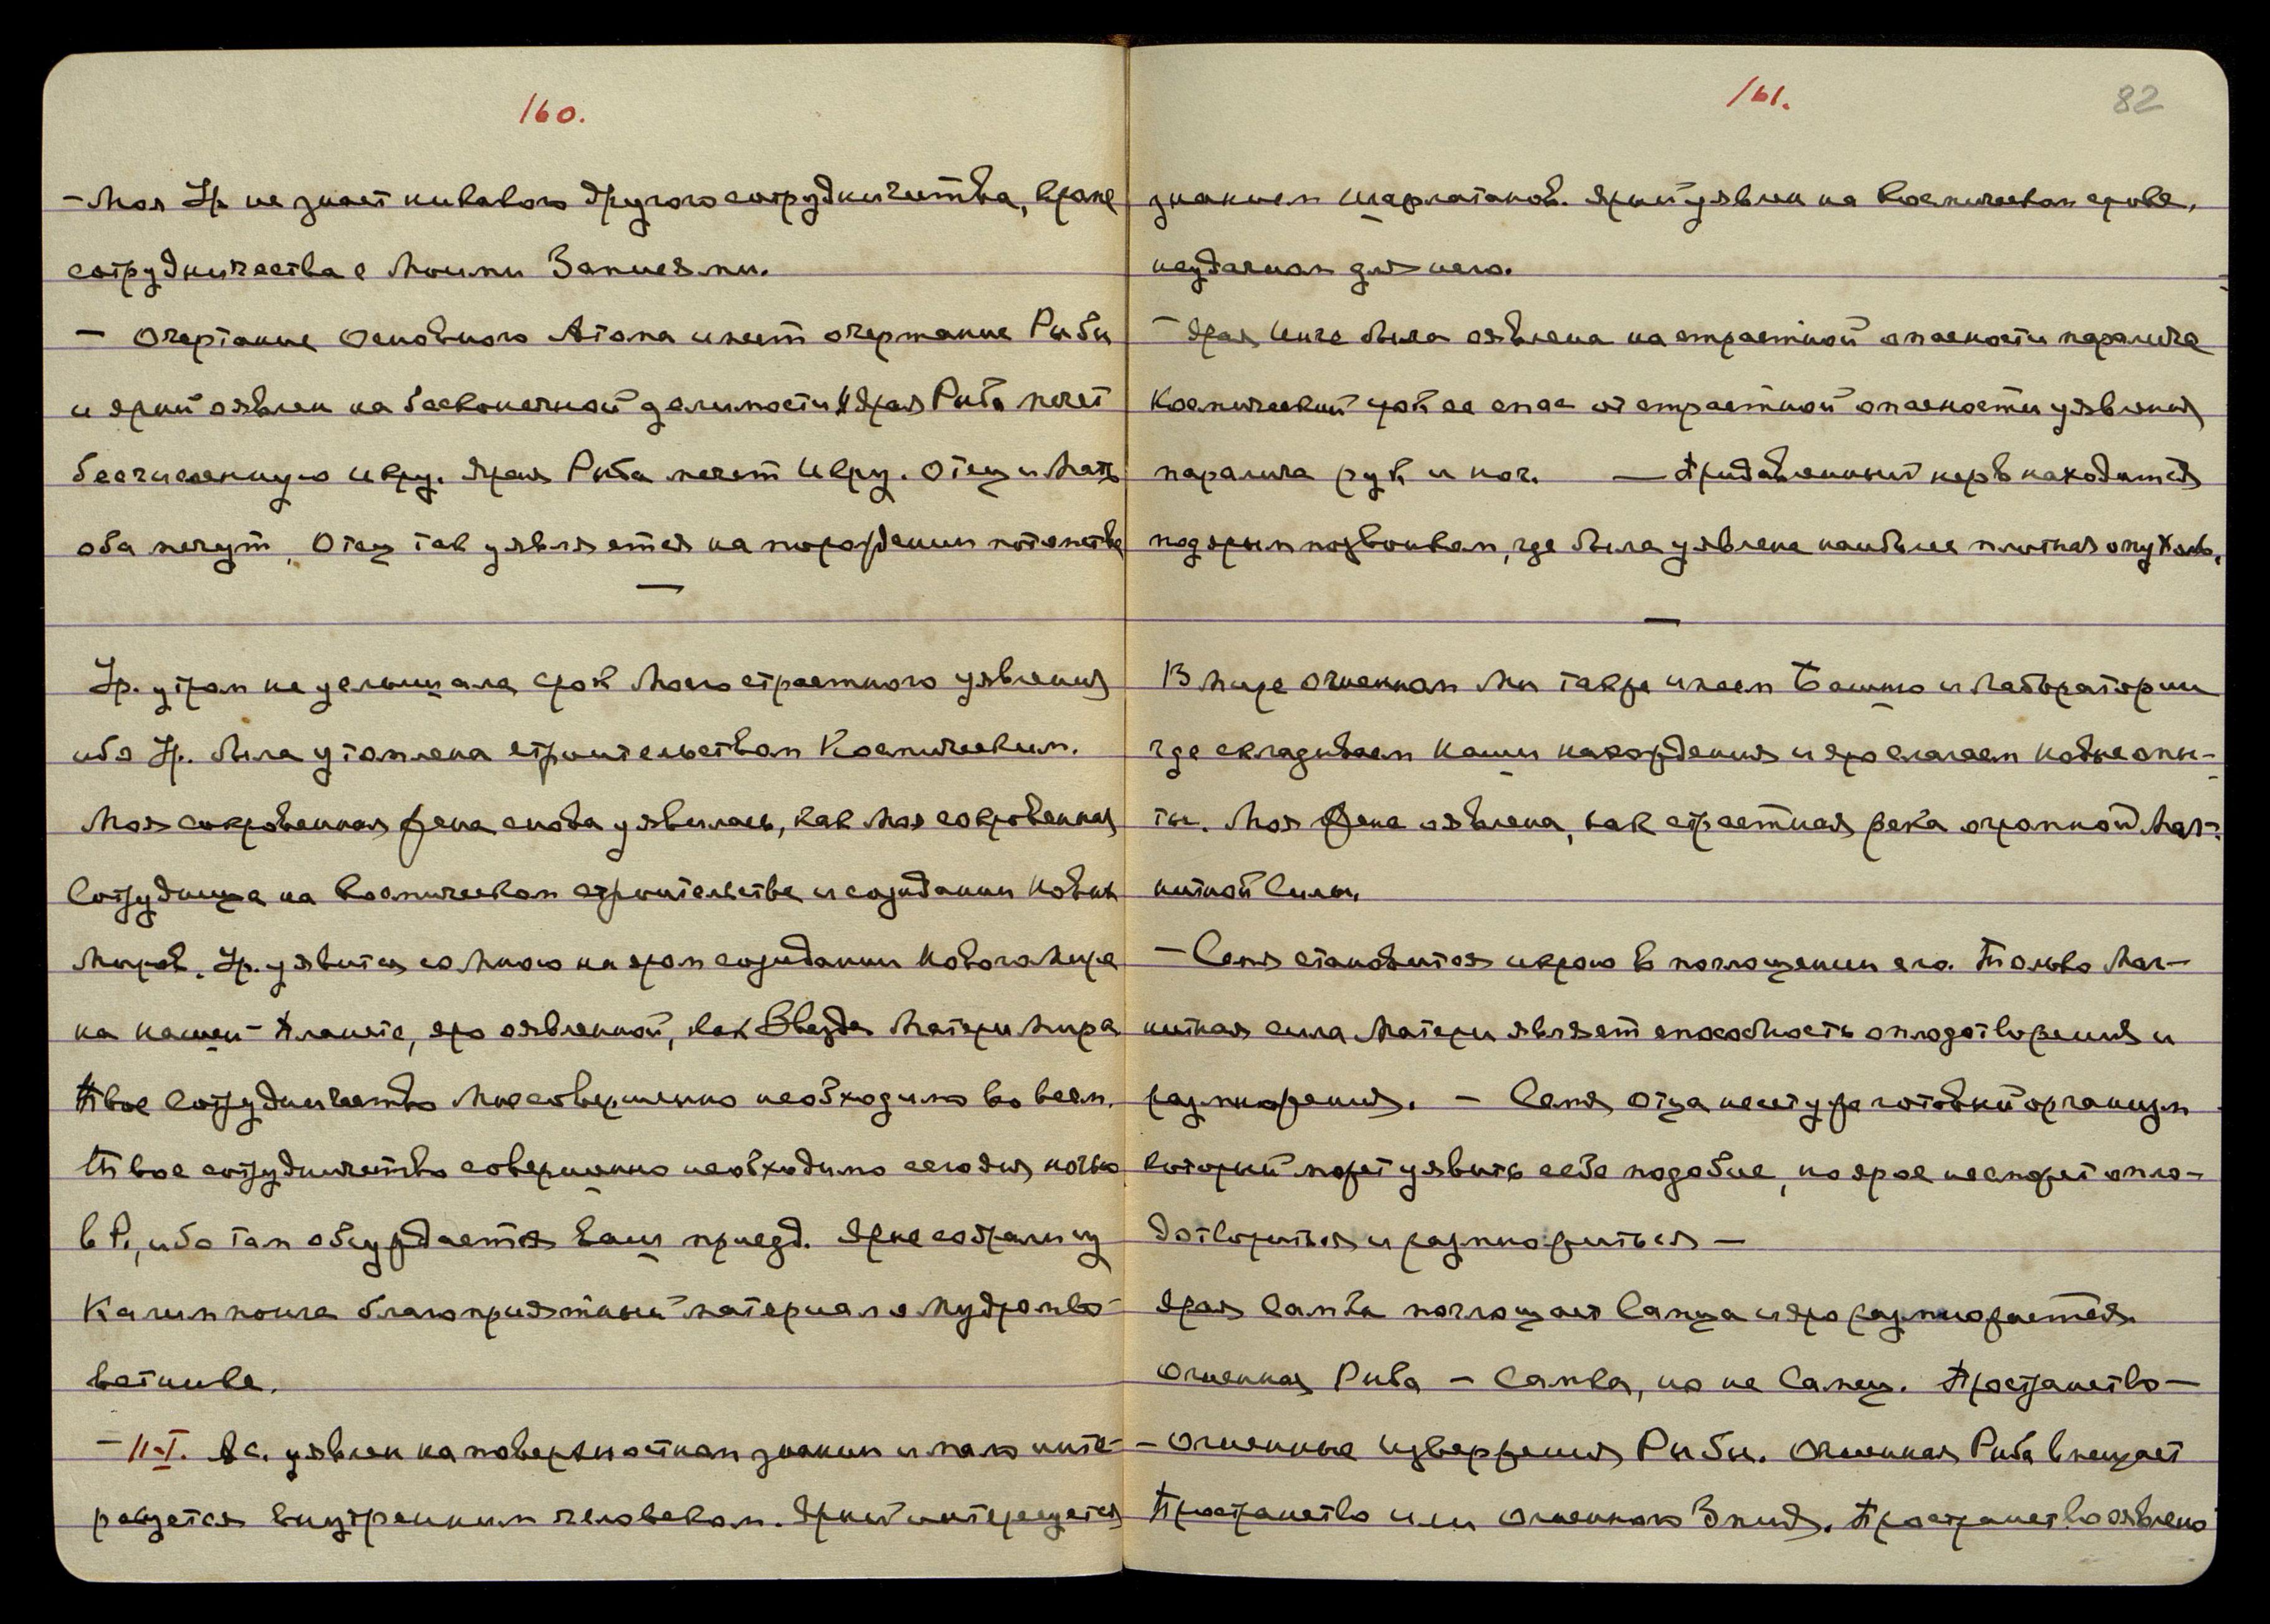 160.
- Моя Ур. не знает никакого другого сотрудничества, кроме
сотрудничества с Моими Записями.
- Очертание Основного Атома имеет очертание Рыбы
и ярый оявлен на бесконечной делимости. Ярая Рыба мечет
бесчисленную икру. Ярая Рыба мечет Икру. Отец и Мать
оба мечут, Отец так уявляется на порождении потомства
—
Ур. утром не услышала срок Моего страстного уявления
ибо Ур. была утомлена строительством Космическим.
Моя сокровенная Жена снова уявилась, как Моя сокровенная
Сотрудница на Космическом строительстве и созидании Новых
Миров. Ур. уявится со Мною на яром созидании Нового Мира
на нашей Планете, яро оявленной, как Звезда Матери Мира
Твое Сотрудничество Мне совершенно необходимо во всем.
Твое сотрудничество совершенно необходимо сегодня ночью
в Р., ибо там обсуждается Ваш приезд. Ярые собрали из
Калимпонга благоприятный материал о Мудром Во-
statнике.
- 11-I. Ас. уявлен на поверхностном знании и мало инте-
ресуется внутренним человеком. Ярый интересуется
161.
82
знанием шарлатанов. Ярый уявлен на Космическом сроке,
неудачном для него.
- Ярая Инге была оявлена на страстной опасности паралича
Космический срок ее спас от страстной опасности уявления
паралича рук и ног. — Придавленный нерв находится
под ярым позвонком, где была уявлена наиболее плотная опухоль.
—
В Мире огненном Мы также имеем Башню и Лаборатории
где складываем Наши нахождения и яро слагаем новые опы-
ты. Моя Жена оявлена, как страстная река огромной Маг-
нитной Силы.
- Семя становится икрою в поглощении его. Только Маг-
нитная сила Матери являет способность оплодотворения и
размножения. - Семя Отца несет уже готовый организм
который может уявить себе подобие, но ярое не сможет опло-
дотвориться и размножиться —
Ярая Самка поглощает Самца и яро размножается.
Огненная Рыба - Самка, но не Самец. Пространство -
- Огненные Извержения Рыбы. Огненная Рыба вмещает
Пространство или Огненного Змия. Пространство оявлено